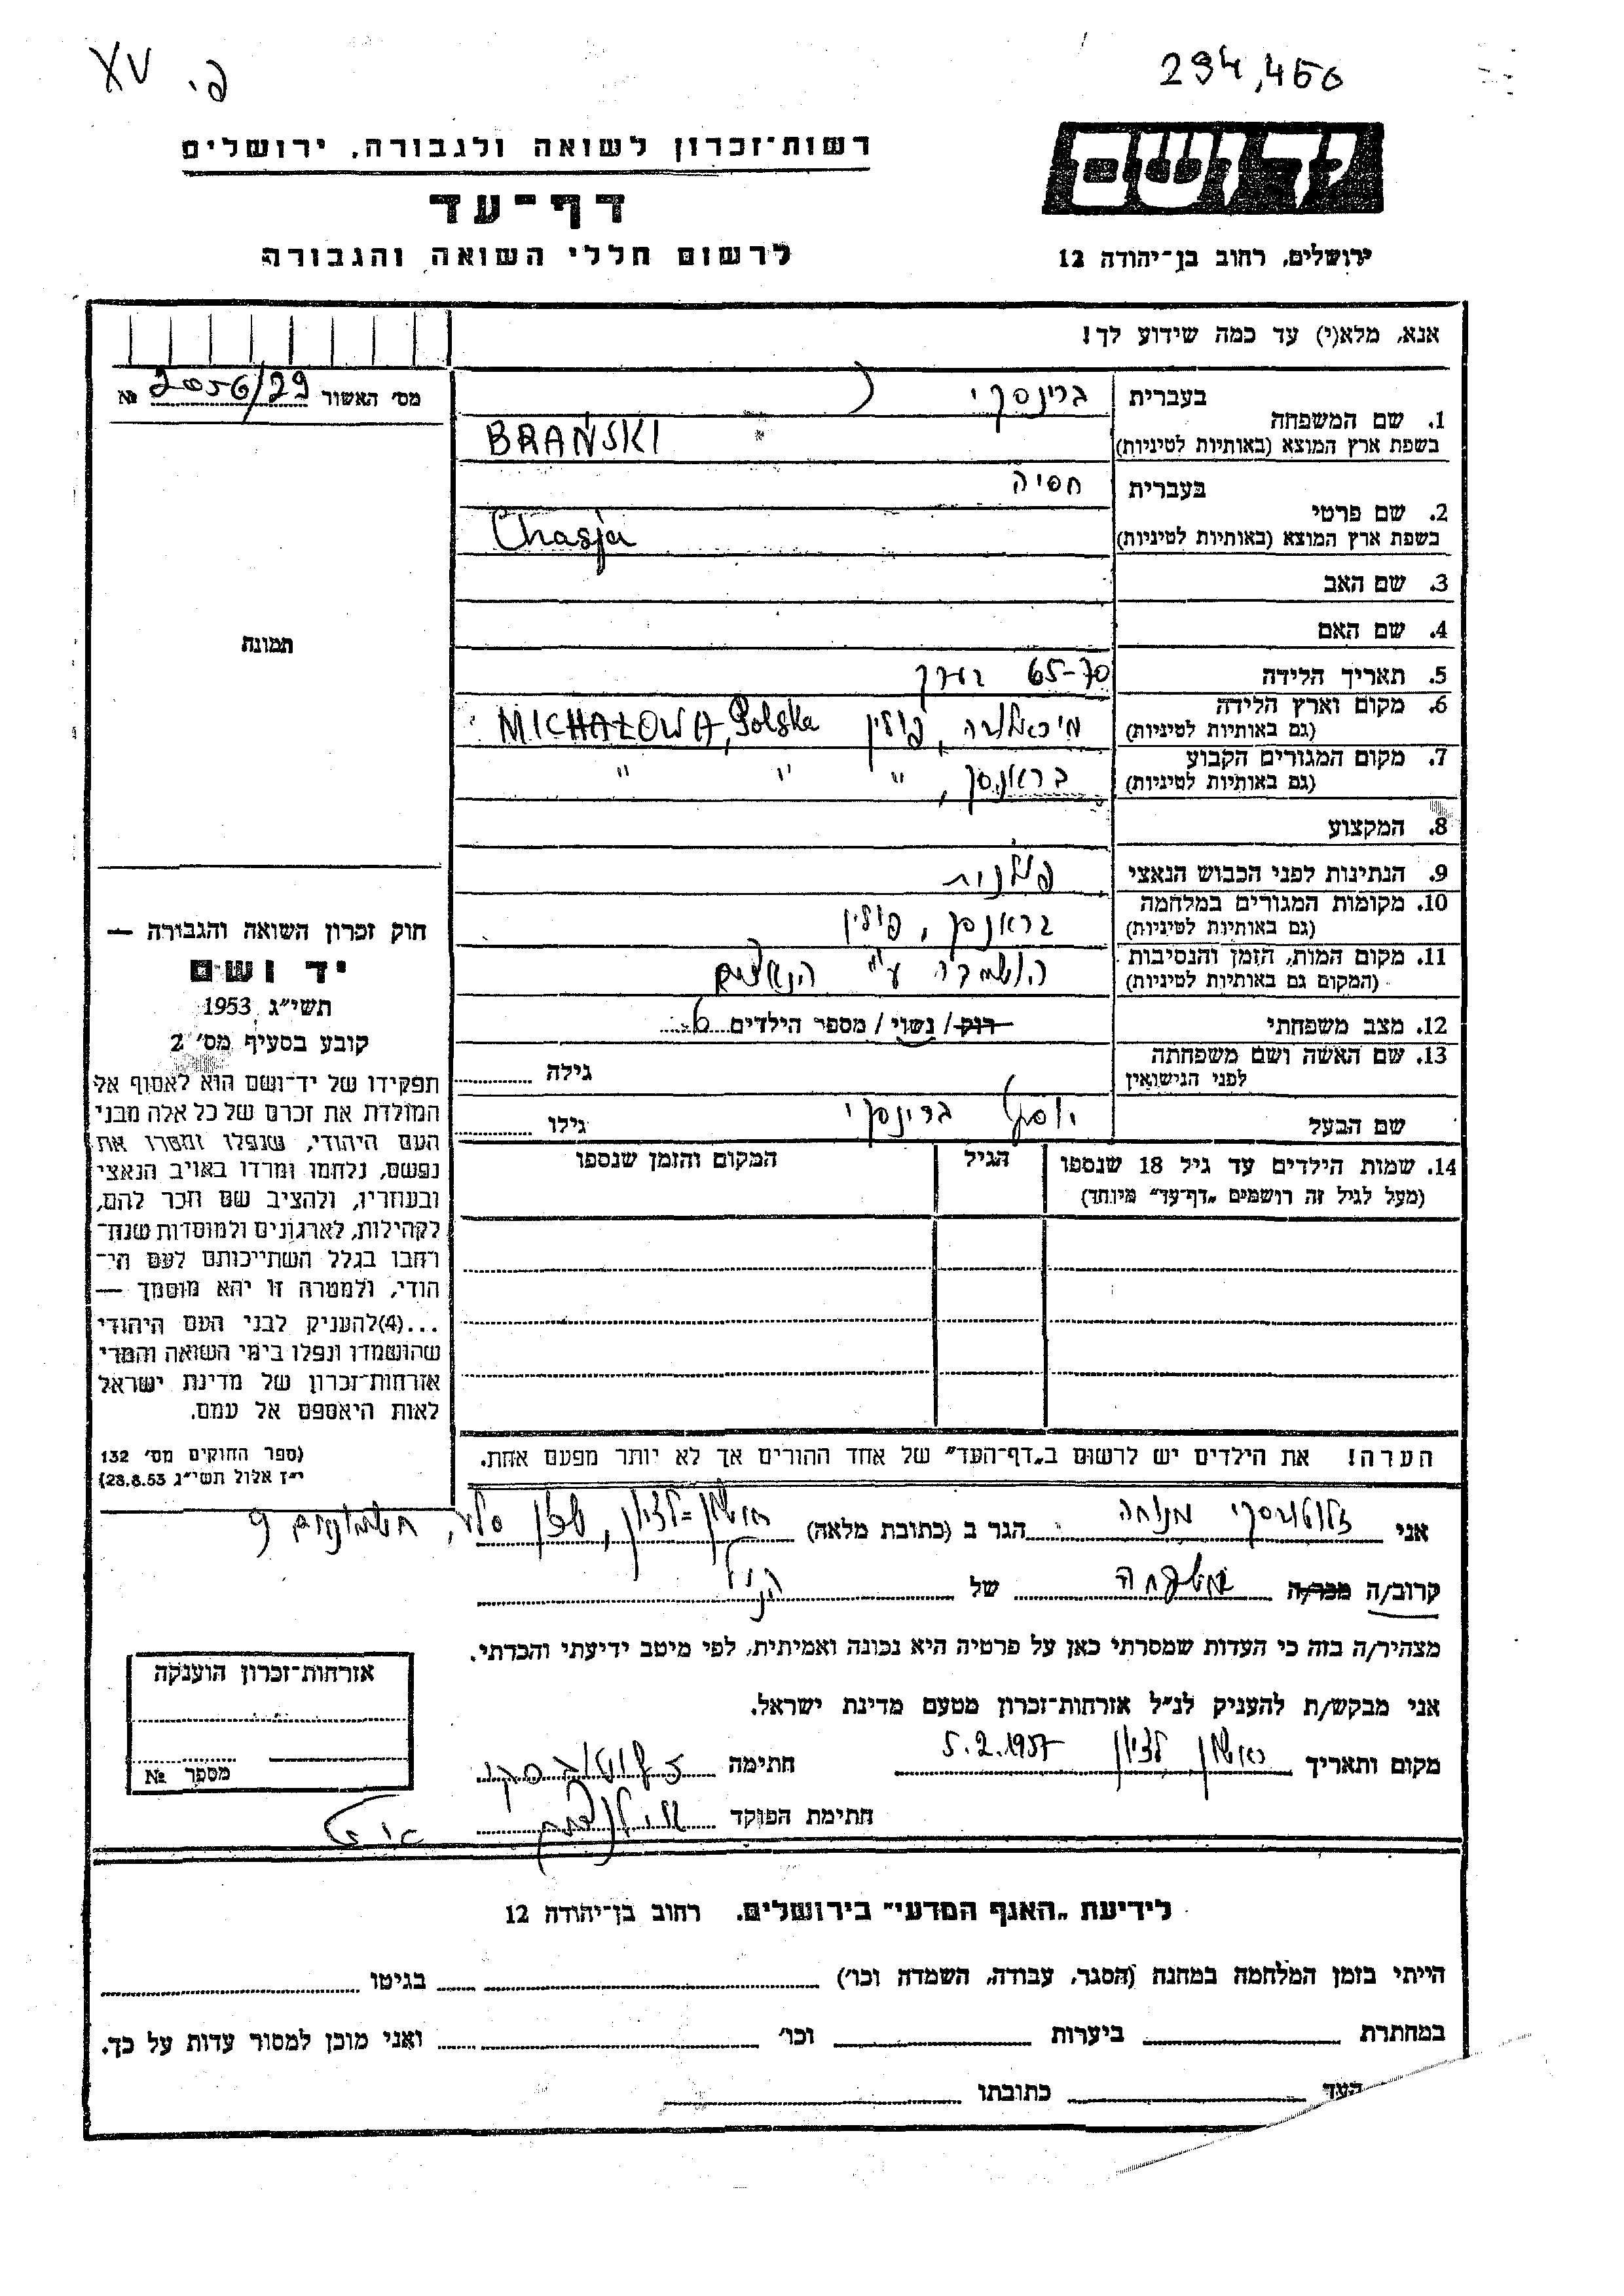 XV פ.
294,450
רשות־זכרון לשואה ולגבורה, ירושלים
דף־עד
לרשום חללי השואה והגבורה
יד ושם
ירושלים, רחוב בן־יהודה 12
אנא, מלא(י) עד כמה שידוע לך!
מס׳ האשור 2056/29 №
1. שם המשפחה
בעברית ברינסקי
בשפת ארץ המוצא (באותיות לטיניות) BRAŃSKI
2. שם פרטי
בעברית חסיה
בשפת ארץ המוצא (באותיות לטיניות) Chasja
3. שם האב
4. שם האם
תמונה
5. תאריך הלידה 65-70 בערך
6. מקום וארץ הלידה
(גם באותיות לטיניות) מיכאלובה, פולין MICHAŁOWA, Polska
7. מקום המגורים הקבוע
(גם באותיות לטיניות) בראנסק, " " "
8. המקצוע
9. הנתינות לפני הכבוש הנאצי פולנית
10. מקומות המגורים במלחמה
(גם באותיות לטיניות) בראנסק, פולין
11. מקום המות, הזמן והנסיבות
(המקום גם באותיות לטיניות) הושמדו ע"י הנאצים
12. מצב משפחתי רוק/ נשוי/ מספר הילדים
13. שם האשה ושם משפחתה
לפני הנישואין גילה
שם הבעל יוסף ברינסקי גילו
14. שמות הילדים עד גיל 18 שנספו הגיל המקום והזמן שנספו
(מעל לגיל זה רושמים „דף־עד״ מיוחד)
חוק זכרון השואה והגבורה —
יד ושם
תשי״ג 1953
קובע בסעיף מס׳ 2
תפקידו של יד־ושם הוא לאסוף אל
המולדת את זכרם של כל אלה מבני
העם היהודי, שנפלו ומסרו את
נפשם, נלחמו ומרדו באויב הנאצי
ובעוזריו, ולהציב שם וזכר להם,
לקהילות, לארגונים ולמוסדות שנח־
רחבו בגלל השתייכותם לעם הי־
הודי, ולמטרה זו יהא מוסמך —
...(4)להעניק לבני העם היהודי
שהושמדו ונפלו בימי השואה והמרי
אזרחות־זכרון של מדינת ישראל
לאות היאספם אל עמם.
(ספר החוקים מס׳ 132
י״ז אלול תשי״ג 28.8.53)
הערה! את הילדים יש לרשום ב„דף־העד״ של אחד ההורים אך לא יותר מפעם אחת.
אני זלוטובסקי מנוחה הגר ב (כתובת מלאה) ראשון-לציון,
קרוב/ה מכר/ה משפחה של הנ"ל
מצהיר/ה בזה כי העדות שמסרתי כאן על פרטיה היא נכונה ואמיתית, לפי מיטב ידיעתי והכרתי.
אני מבקש/ת להעניק לנ״ל אזרחות־זכרון מטעם מדינת ישראל.
מקום ותאריך ראשון לציון 5.2.1957 חתימה זלוטובסקי
חתימת הפוקד
אזרחות־זכרון הוענקה
מספר №
לידיעת „האגף המדעי״ בירושלים. רחוב בן־יהודה 12
הייתי בזמן המלחמה במחנה (הסגר, עבודה, השמדה וכו׳) בגיטו
במחתרת ביערות וכו׳ ואני מוכן למסור עדות על כך.
העד כתובתו